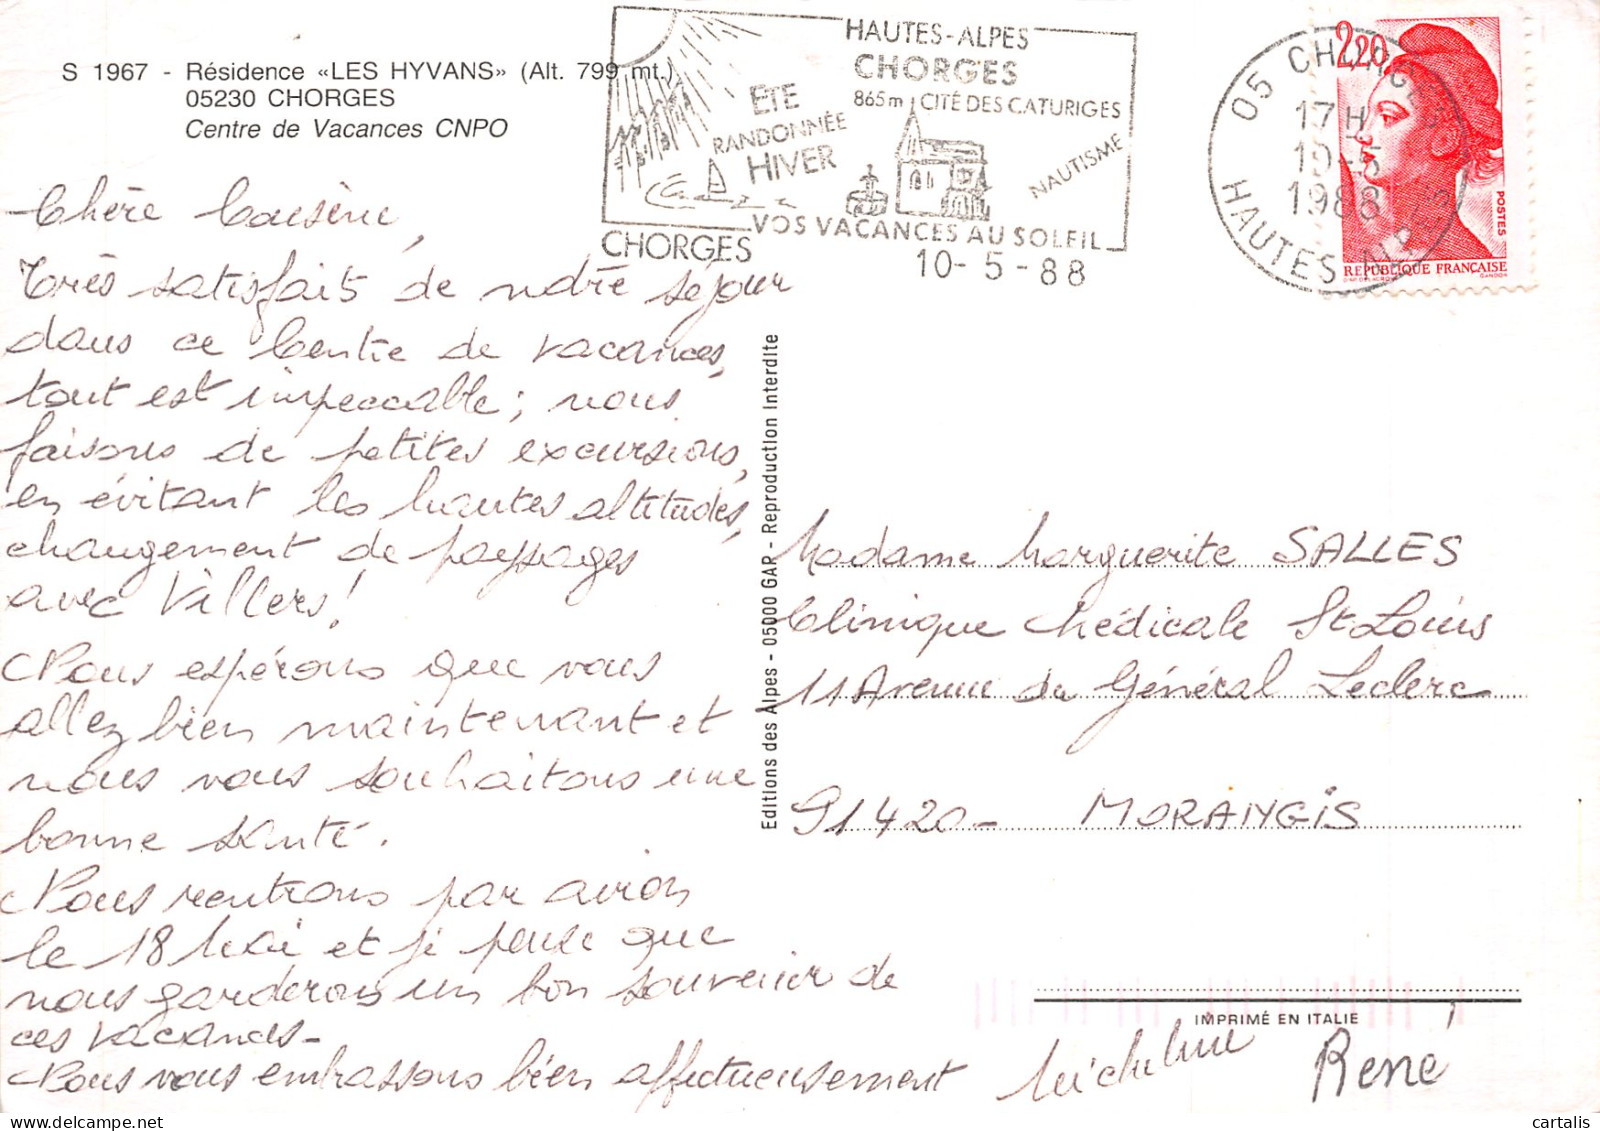 S 1967 - Résidence «LES HYVANS» (Alt. 799 mt.)
05230 CHORGES
Centre de Vacances CNPO
HAUTES-ALPES
CHORGES
865m CITÉ DES CATURIGES
ÉTÉ
RANDONNÉE
HIVER
NAUTISME
VOS VACANCES AU SOLEIL
CHORGES
10-5-88
05 CHORGES
17H
10-5
1988
HAUTES-ALPES
2,20
POSTES
REPUBLIQUE FRANÇAISE
Chère Cousine,
Très satisfaits de notre séjour
dans ce Centre de vacances,
tout est impeccable; nous
faisons de petites excursions,
en évitant les hautes altitudes,
changement de paysages
avec Villers!
Nous espérons que vous
allez bien maintenant et
nous vous souhaitons une
bonne santé.
Nous rentrons par avion
le 18 Mai et je pense que
nous garderons un bon souvenir de
ces vacances-
Nous vous embrassons bien affectueusement
Micheline René
Editions des Alpes - 05000 GAP - Reproduction Interdite
Madame Marguerite SALLES
Clinique Médicale St Louis
11 Avenue du Général Leclerc
91420- MORANGIS
IMPRIMÉ EN ITALIE
cartalis
delcampe.net